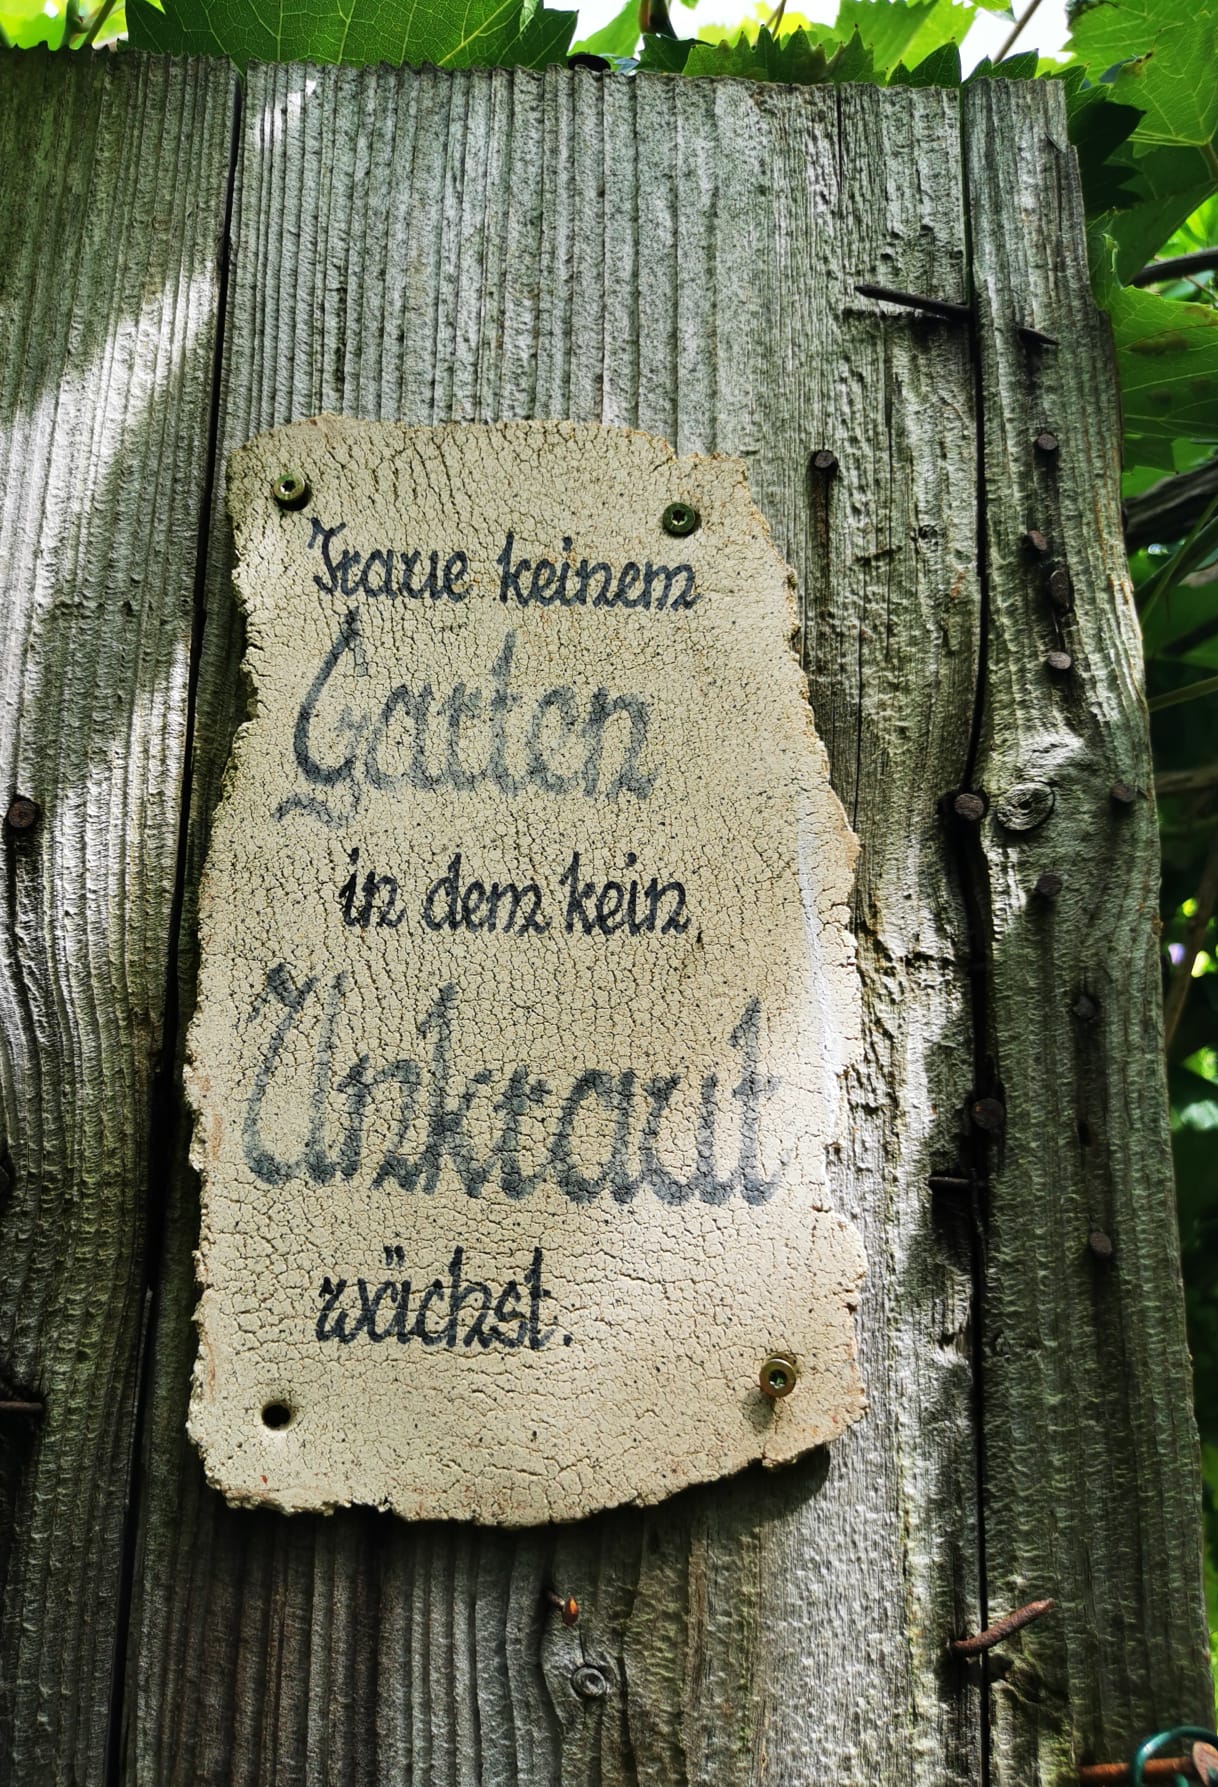 Traue keinem
Garten
in dem kein
Unkraut
wächst.